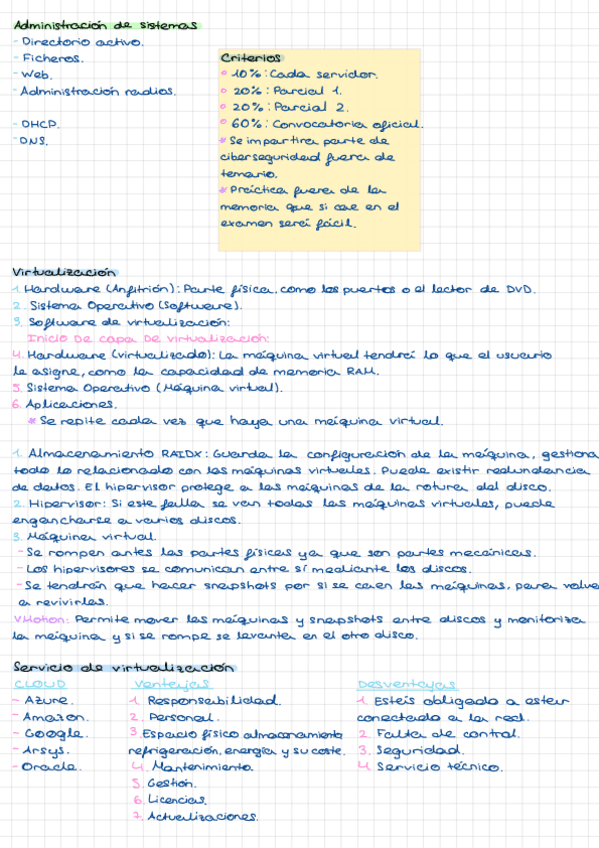 Administración de sistemas
- Directorio activo.
- Ficheros.
- Web.
- Administración radios.
- DHCP.
- DNS.
Criterios
° 10%: Cada servidor.
° 20%: Parcial 1.
° 20%: Parcial 2.
° 60%: Convocatoria oficial.
* Se impartira parte de
ciberseguridad fuera de
temario.
* Práctica fuera de la
memoria que si cae en el
examen será fácil.
Virtualización
1. Hardware (Anfitrión): Parte física, como los puertos o el lector de DVD.
2. Sistema Operativo (Software).
3. Software de virtualización:
Inicio De capa De virtualización:
4. Hardware (virtualizado): La máquina virtual tendrá lo que el usuario
le asigne, como la capacidad de memoria RAM.
5. Sistema Operativo (Máquina virtual).
6. Aplicaciones.
* Se repite cada vez que haya una máquina virtual.
1. Almacenamiento RAIDX: Guarda la configuración de la máquina, gestiona
todo lo relacionado con las máquinas virtuales. Puede existir redundancia
de datos. El hipervisor protege a las máquinas de la rotura del disco.
2. Hipervisor: Si este falla se van todas las máquinas virtuales, puede
engancharse a varios discos.
3. Máquina virtual.
- Se rompen antes las partes físicas ya que son partes mecánicas.
- Los hipervisores se comunican entre sí mediante los discos.
- Se tendrán que hacer snapshots por si se caen las máquinas, para volve
a revivirlas.
VMotion: Permite mover las máquinas y snapshots entre discos y monitoriza
la máquina y si se rompe se levanta en el otro disco.
Servicio de virtualización
CLOUD
- Azure.
- Amazon.
- Google.
- Arsys.
- Oracle.
Ventajas
1. Responsabilidad.
2. Personal.
3. Espacio físico almacenamiento
refrigeración, energía y su coste.
4. Mantenimiento.
5. Gestión.
6. Licencias.
7. Actualizaciones.
Desventajas
1. Estás obligado a estar
conectado a la red.
2. Falta de control.
3. Seguridad.
4. Servicio técnico.